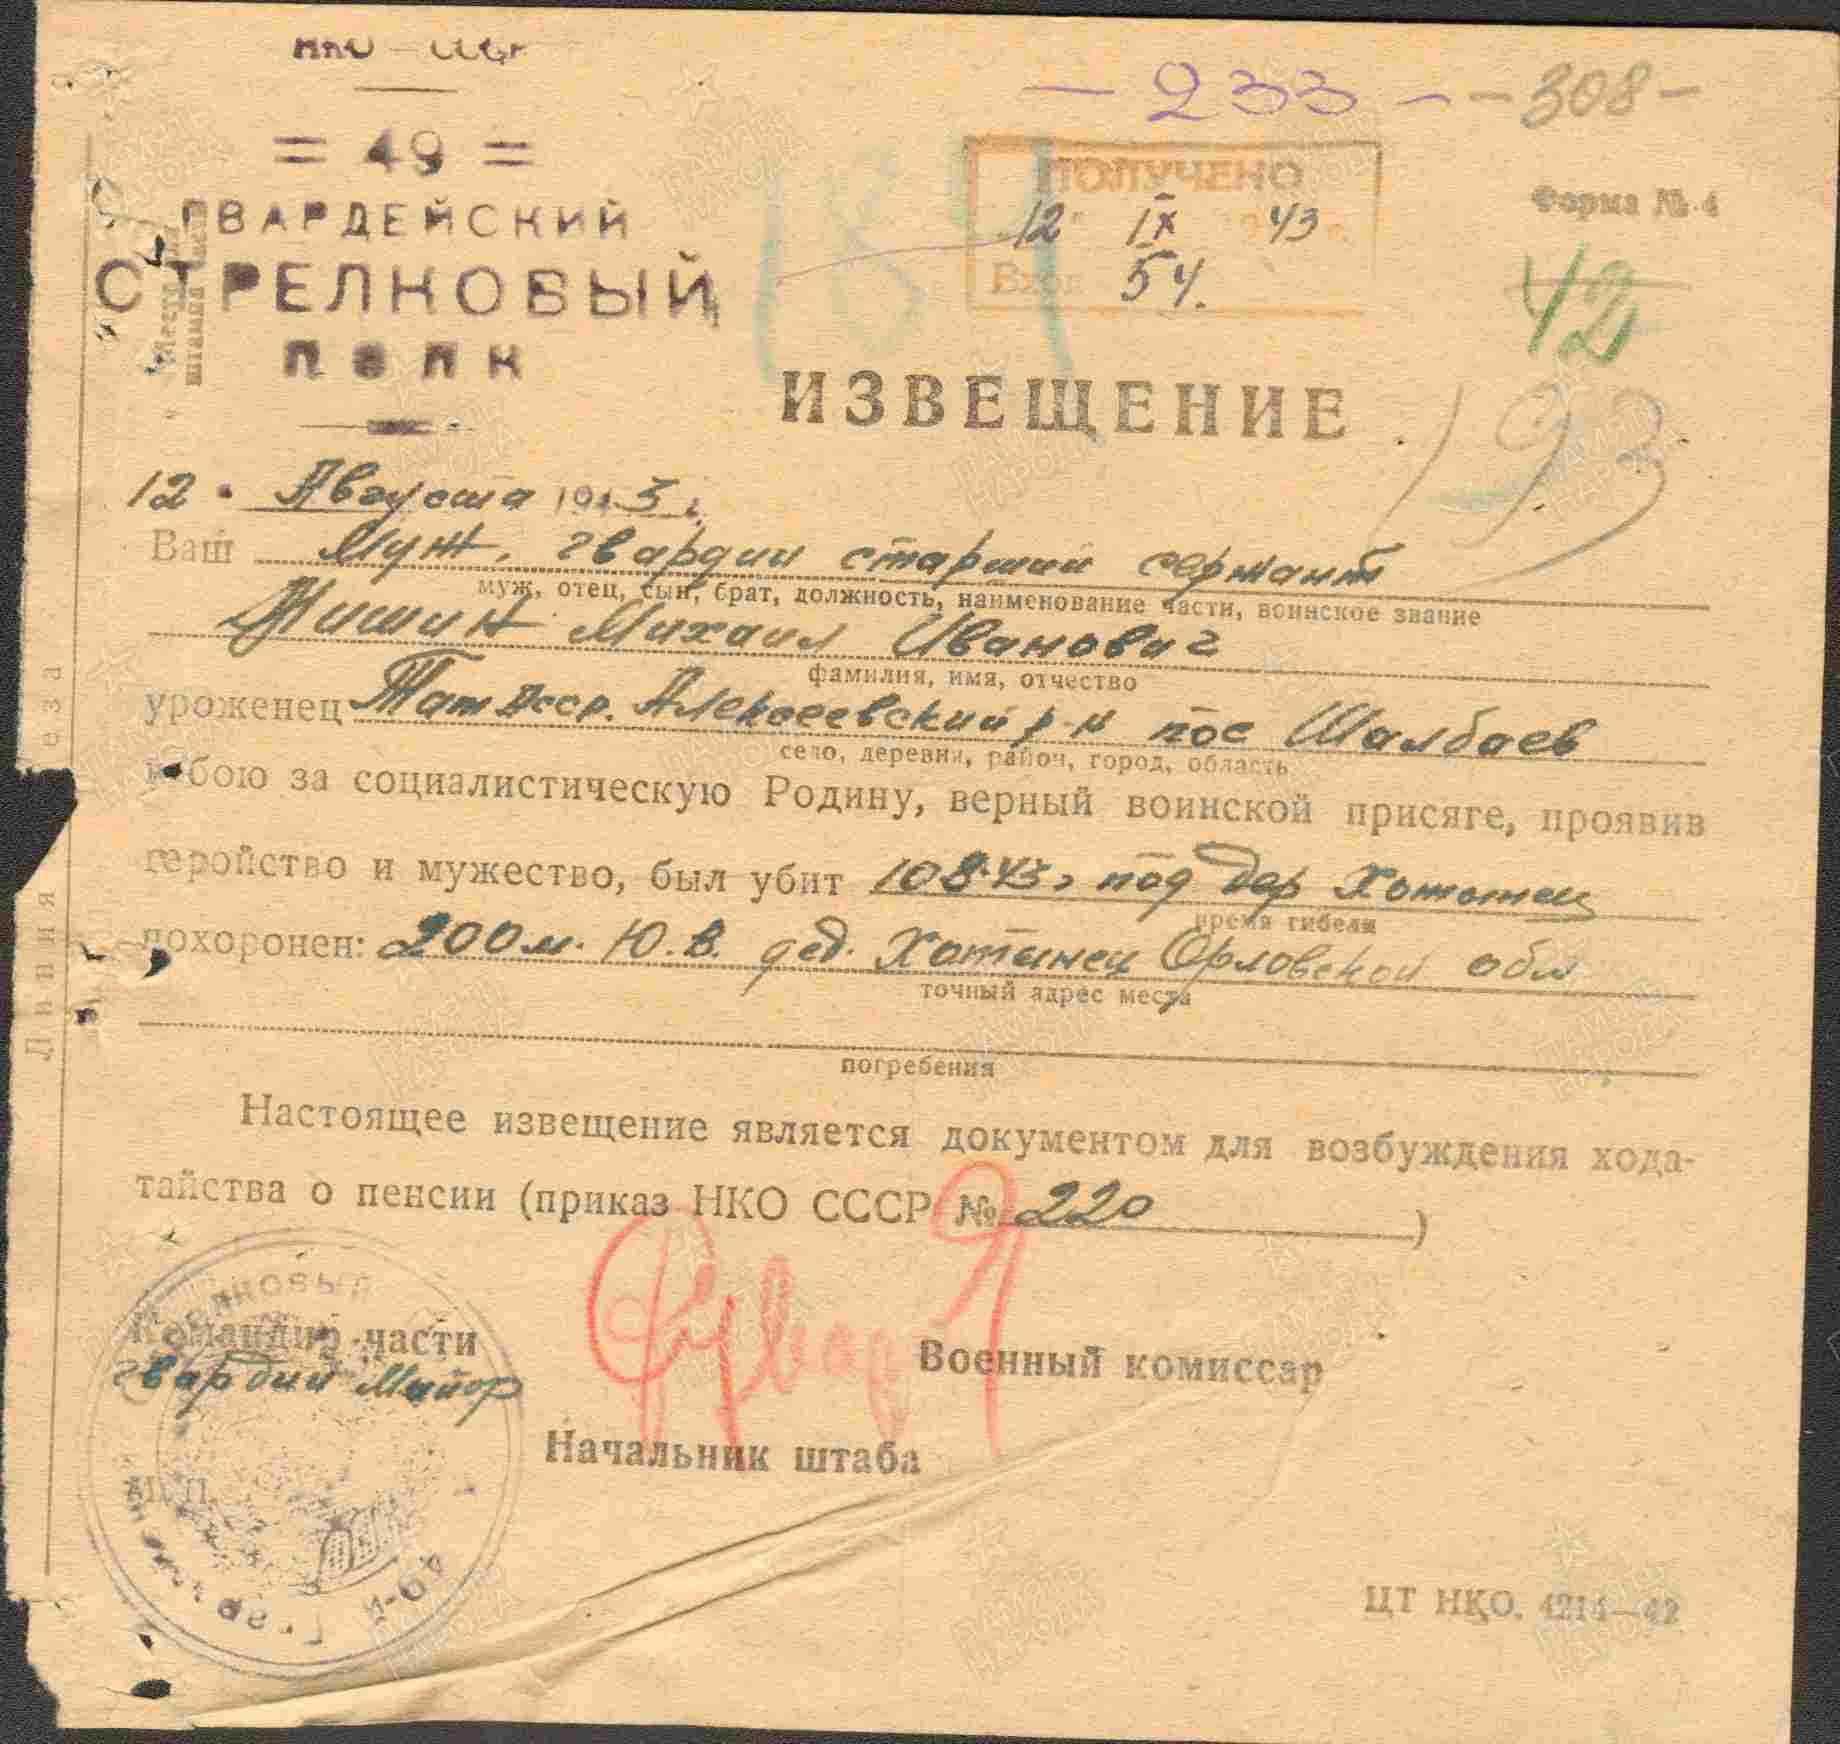 НКО - СССР
- 233 - - 308 -
= 49 =
ГВАРДЕЙСКИЙ
СТРЕЛКОВЫЙ
ПОЛК
ПОЛУЧЕНО
12 IX 43
Вход 54.
Форма № 4
42
193
ИЗВЕЩЕНИЕ
12 Августа 1943 г.
Ваш Муж, гвардии старший сержант
муж, отец, сын, брат, должность, наименование части, воинское звание
Жишин Михаил Иванович
фамилия, имя, отчество
уроженец Тат Асср. Алексеевский р-н пос Шалбаев
село, деревня, район, город, область
в бою за социалистическую Родину, верный воинской присяге, проявив
геройство и мужество, был убит 10 8.43 г под дер Хотынец
время гибели
похоронен: 200 м. Ю.В. дер. Хотынец Орловской обл
точный адрес места
погребения
Настоящее извещение является документом для возбуждения хода-
тайства о пенсии (приказ НКО СССР № 220 )
Командир части
гвардии Майор
Военный комиссар
Начальник штаба
М. П.
ЦТ НКО. 4214—42
Линия реза